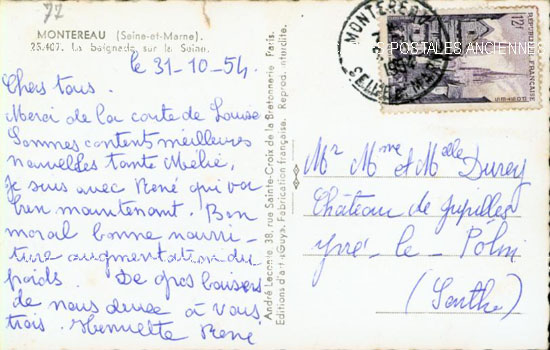 77
MONTEREAU (Seine-et-Marne).
25.407. La baignade sur la Seine.
le 31-10-54.
Chers tous.
Merci de la carte de Louise
Sommes contents meilleures
nouvelles tante Mélie,
Je suis avec René qui va
bien maintenant. Bon
moral bonne nourri-
ture augmentation du
poids. De gros baisers
de nous deux à vous
trois. Henriette René
André Leconte, 38, rue Sainte-Croix de la Bretonnerie Paris.
Editions d'art "Guy". Fabrication française. Reprod. interdite.
MONTEREAU
SEINE ET MARNE
POSTALES ANCIENNES
12F
Mr Mme et Melle Durey
Château de Jupilles
Yvré-le-Pôlin
(Sarthe)